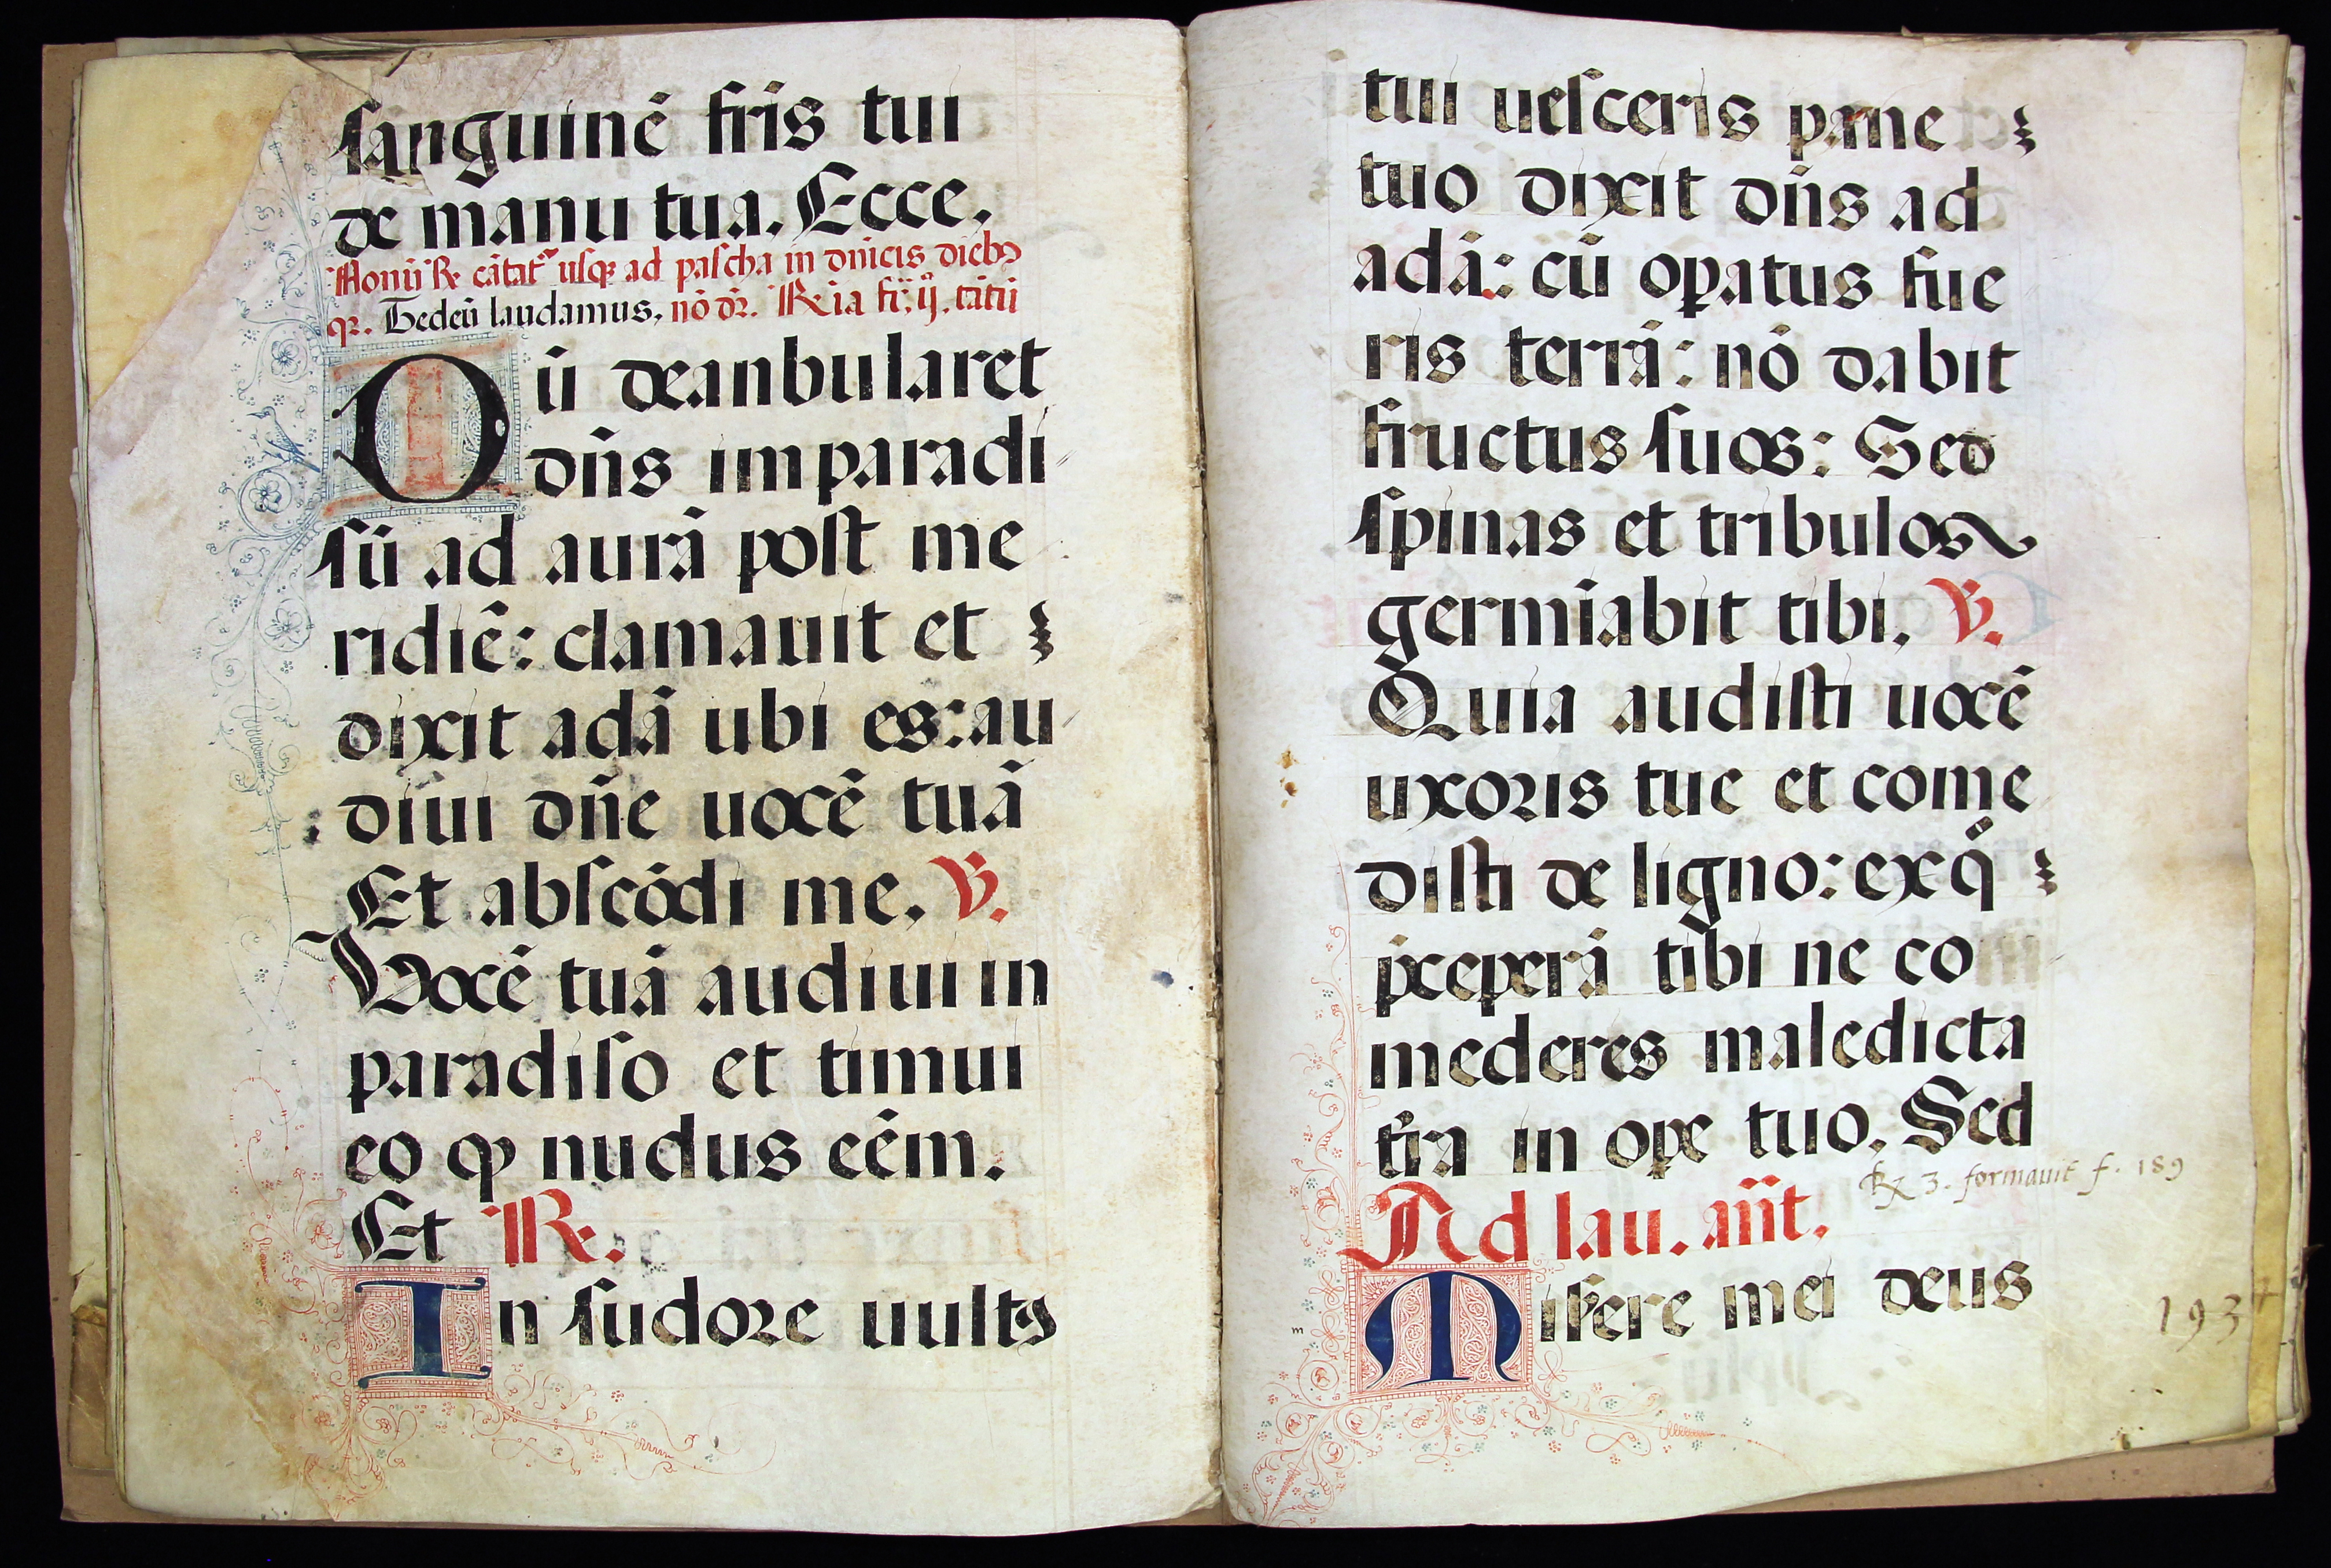 sanguinē fr̄is tui
de manu tua. Ecce.
Nonū ℟ cātat᷑ usqꝫ ad pascha in dn̄icis diebꝰ
qꝛ. Tedeū laudamus. nō dꝛ̄. ℟ ia fr̄. ij. tātū
Dū deanbularet
dn̄s im paradi
sū ad aurā post me
ridiē: clamauit et
dixit adā ubi es: au
diui dn̄e uocē tuā
Et abscōdi me. ℣.
Vocē tuā audiui in
paradiso et timui
eo ꝙ nudus eēm.
Et ℟.
In sudore uultꝰ
tui uesceris pane
tuo dixit dn̄s ad
adā: cū oꝑatus fue
ris terrā: nō dabit
fructus suos: Sed
spinas et tribulos
germīabit tibi. ℣.
Quia audisti uocē
uxoris tue et come
disti de ligno: ex qͦ
p̄ceperā tibi ne co
mederes maledicta
tr̄ra in oꝑe tuo. Sed
℟ 3. formauit f. 189
Ad lau. an̄t.
Miẜere mei deus
m
193